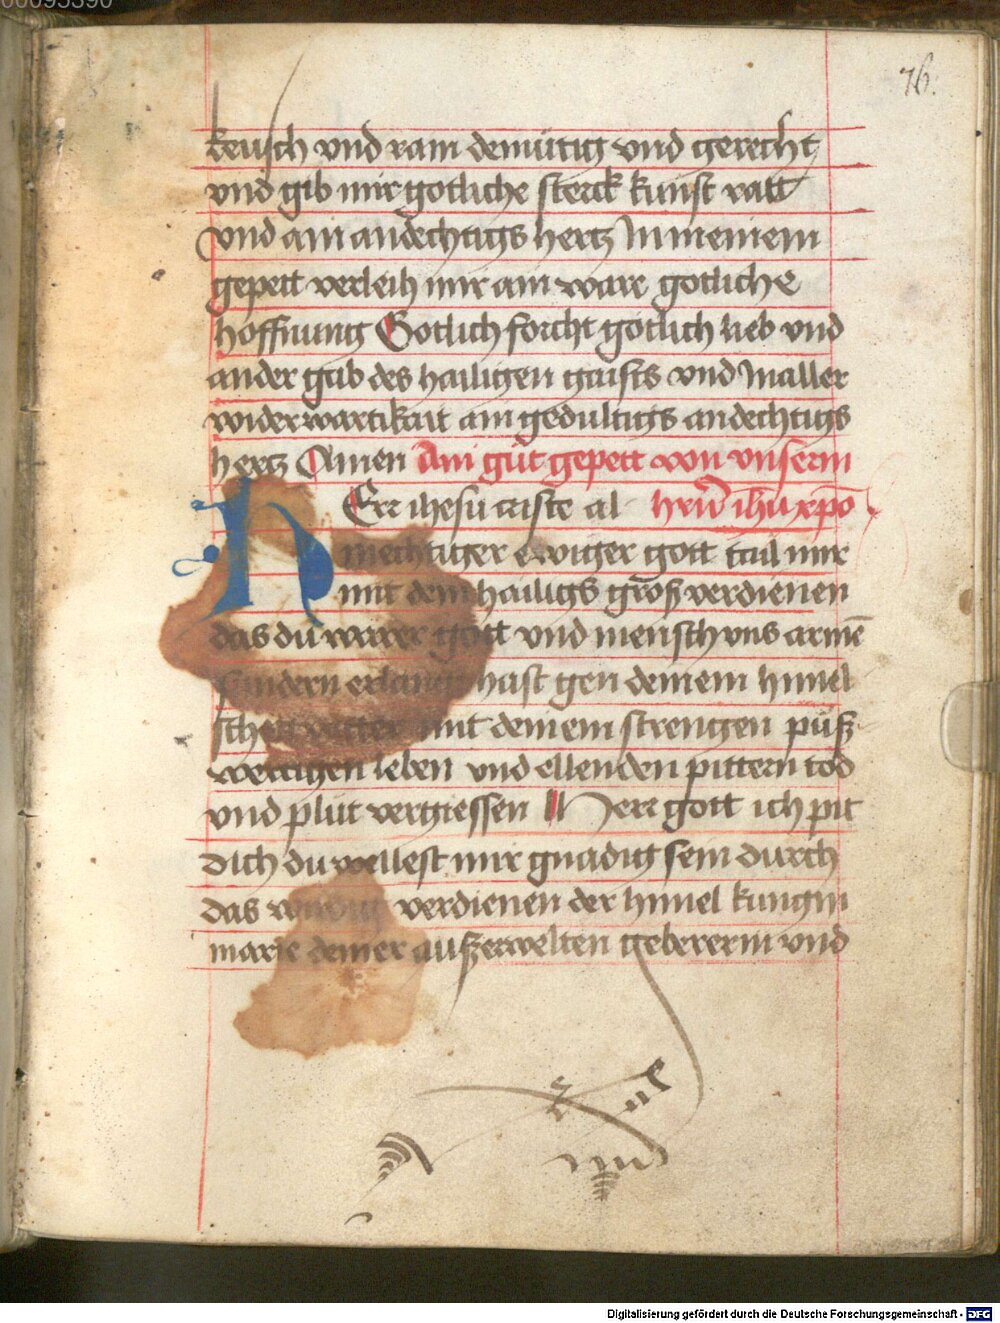 00095390
76.
keusch vnd rain demütig vnd gerecht
vnd gib mir gotliche sterck kunst ratt
vnd ain andechtigs hertz In meinem
gepett verleih mir ain ware gotliche
hoffnung Gotlich forcht gotlich lieb vnd
ander gab des hailigen gaists vnd In aller
widerwartikait ain gedultigs andechtigs
hertz Amen Ain gůt gepett von vnserm
HErr ihesu criste al herῡ ihū xpō
mechtiger ewiger gott tail mir
mit dein hailigs groß verdienen
das du warer gott vnd mensch vns armē
sundern erlangt hast gen deinem himel
schen vatter mit deinem strengen püß
wertigen leben vnd ellenden pittern tod
vnd plüt vergiessen Herr gott ich pit
dich du wellest mir gnadig sein durch
das wirdig verdienen der himel kungin
marie deiner außerwelten gebererin vnd
Digitalisierung gefördert durch die Deutsche Forschungsgemeinschaft - DFG